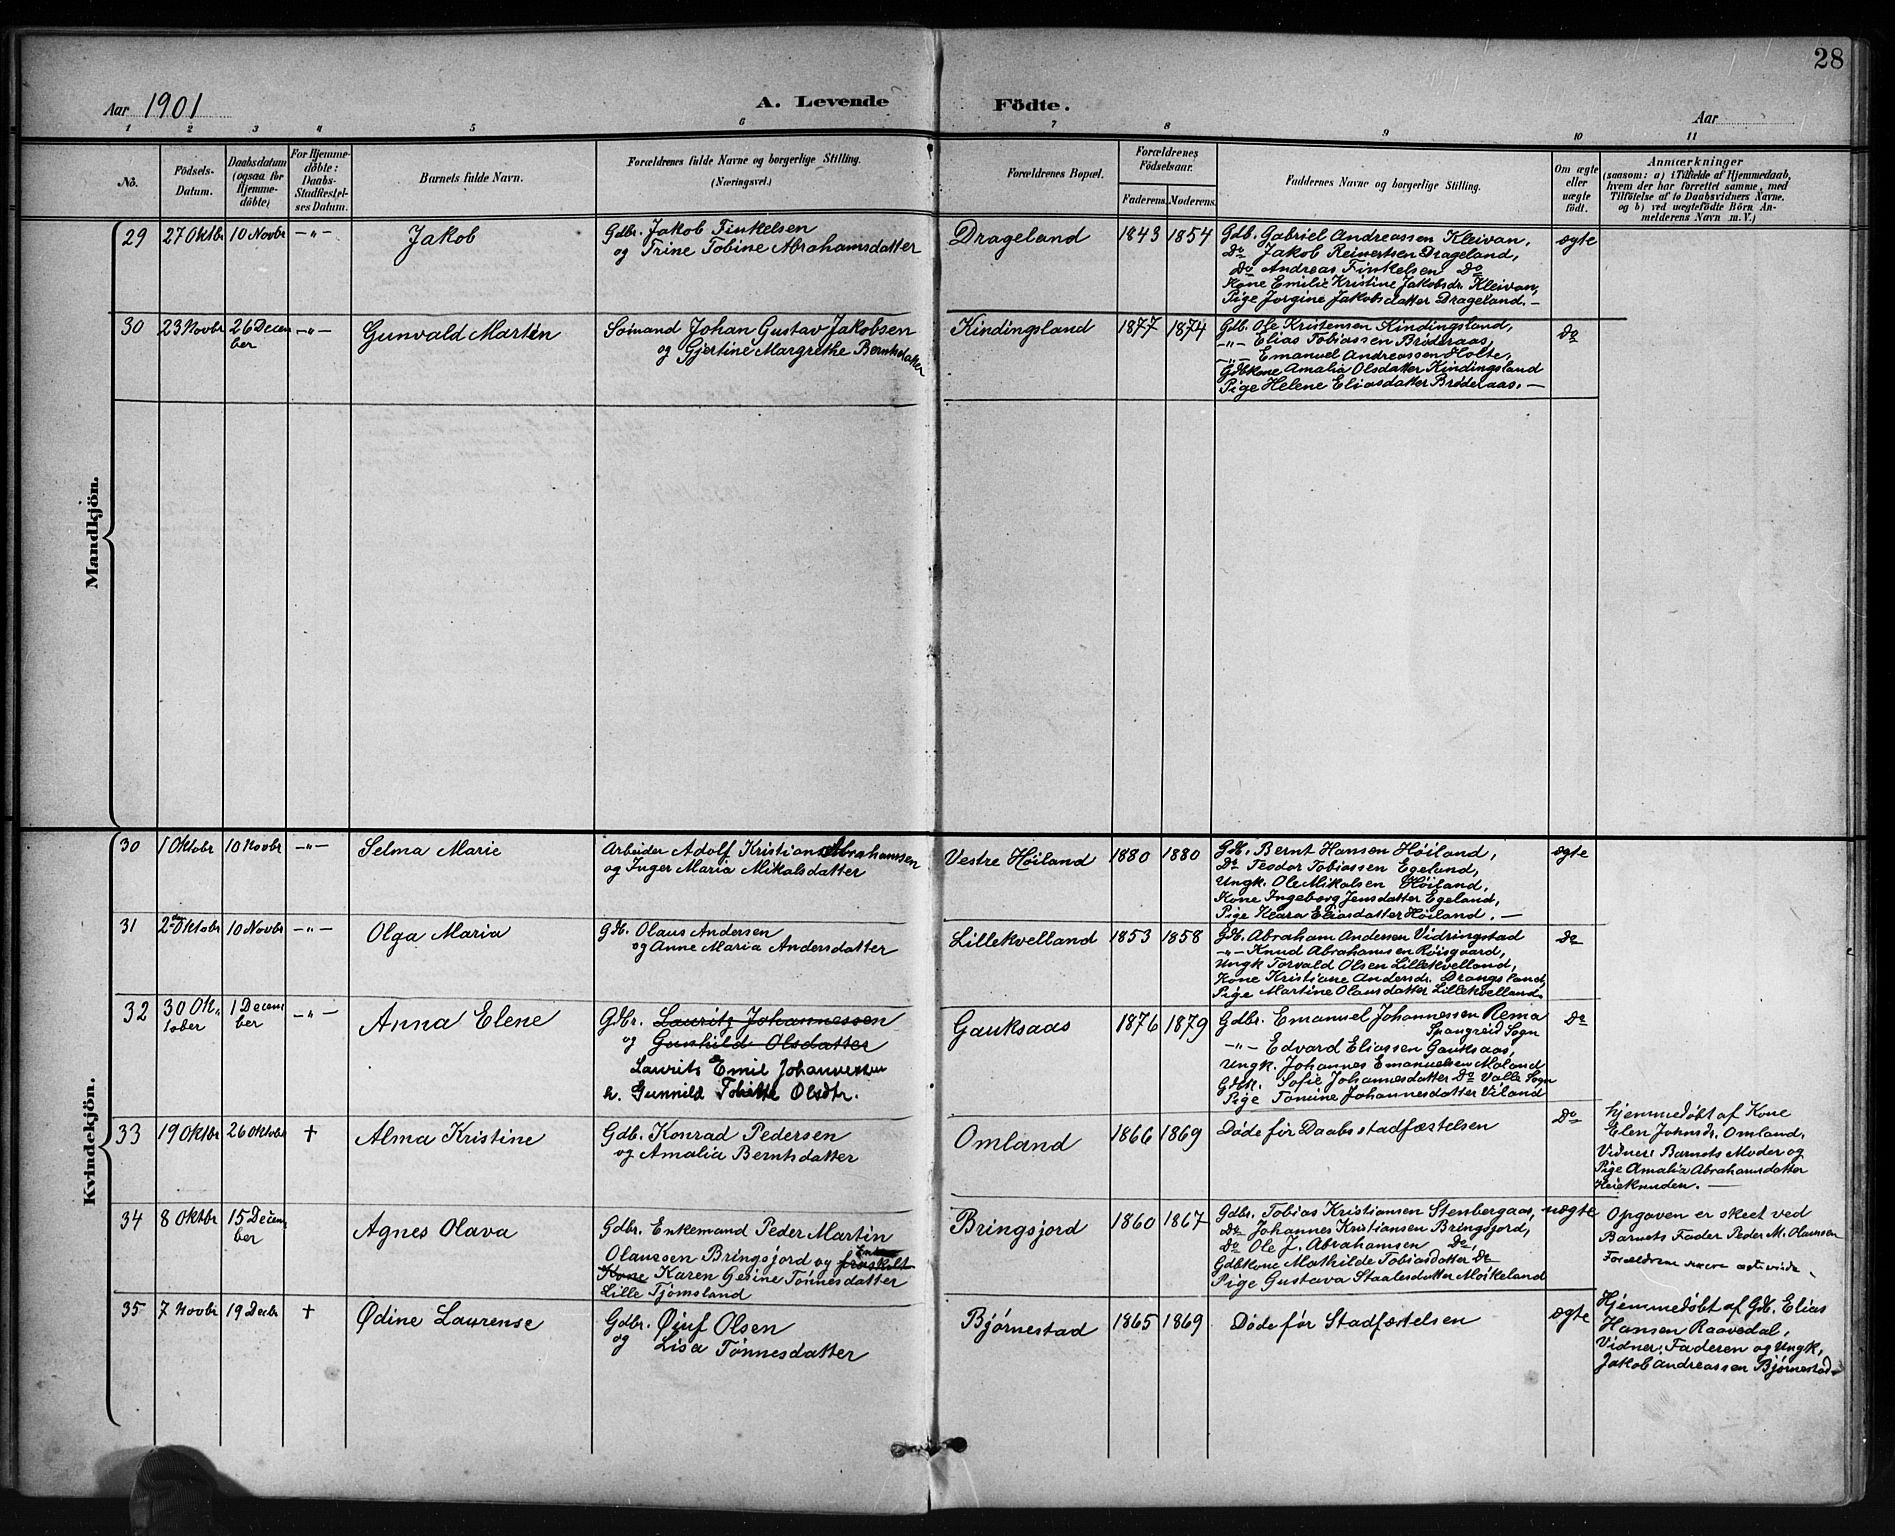 28
Aar 1901
A. Levende Födte.
Aar
1 2 3 4 5 6 7 8 9 10 11
No.
Födsels-Datum.
Daabsdatum (ogsaa for Hjemme-döbte)
For Hjemme-döbte: Daabs-Stadfæstel-ses Datum.
Barnets fulde Navn.
Forældrenes fulde Navne og borgerlige Stilling.
(Næringsvei.)
Forældrenes Bopæl.
Forældrenes Födselsaar.
Faderens. Moderens.
Faddernes Navne og borgerlige Stilling.
Om ægte eller uægte födt.
Anmærkninger
(saasom: a) i Tilfælde af Hjemmedaab,
hvem der har forrettet samme, med
Tilföielse af to Daabsvidners Navne.
og b) ved uægtefödte Börn An-
melderens Navn m. V.)
Mandkjön.
29 27 Oktbr 10 Novbr -"- Jakob
Gdbr. Jakob Finkelsen
og Trine Tobine Abrahamsdatter
Drageland 1843 1854
Gdb. Gabriel Andreassen Kleivan,
Do Jakob Reinertsen Drageland,
Do Andreas Finkelsen Do
Kone Emilie Kristine Jakobsdr. Kleivan,
Pige Jorgine Jakobsdatter Drageland. -
ægte
30 23 Novbr 26 Decem
ber
-"- Gunvald Martin
Sømand Johan Gustav Jakobsen
og Gjertine Margrethe Berntsdatter
Kindingsland 1877 1874
Gdb. Ole Kristensen Kindingsland,
-"- Elias Tobiassen Brøderaas,
-"- Emanuel Andreassen Holte,
Gdbkone Amalia Olsdatter Kindingsland
Pige Helene Eliasdatter Brøderaas. -
Do
Kvindekjön.
30 1 Oktobr 10 Novbr -"- Selma Marie
Arbeider Adolf Kristian Abrahamsen
og Inger Maria Mikalsdatter
Vestre Høiland 1880 1880
Gdb. Bernt Hansen Høiland,
Do Teodor Tobiassen Egeland,
Ungk. Ole Mikalsen Høiland,
Kone Ingeborg Jensdatter Egeland,
Pige Klara Eliasdatter Høiland. -
ægte
31 2den Oktobr 10 Novbr -"- Olga Maria
Gdb. Olaus Andersen
og Anne Maria Andersdatter
Lillekvelland 1853 1858
Gdb. Abraham Andersen Vidringstad
-"- Knud Abrahamsen Røisgaard,
Ungk Torvald Olsen Lillekvelland,
Kone Kristiane Andersdr. Drangsland,
Pige Martine Olausdatter Lillekvelland.
Do
32 30 Ok-
tober
1 Decem
ber
-"- Anna Elene
Gdbr. Lauritz Johannessen
og Gunhild Olsdatter
Laurits Emil Johannessen
h. Gunnild Tobitte Olsdtr.
Gauksaas 1876 1879
Gdbr. Emanuel Johannessen Rema
Spangreid Sogn
-"- Edvard Eliassen Gauksaas,
Ungk. Johannes Emanuelsen Møland
Gdbk. Sofie Johannesdatter Do Valle Sogn
Pige Tomine Johannesdatter Viland
Do
33 19 Oktbr 26 Oktobr † Alma Kristine
Gdb. Konrad Pedersen
og Amalia Berntsdatter
Omland 1866 1869
Døde før Daabsstadfæstelsen
Do
Hjemmedøbt af Kone
Elen Johnsdr. Omland.
Vidner: Barnets Moder og
Pige Amalia Abrahamsdatter
Heieknuden. -
34 8 Oktbr 15 Decem
ber
Agnes Olava
Gdbr. Enkemand Peder Martin
Olaussen Bringsjord og fraskilt Enke
Kone Karen Gesine Tønnesdatter
Lille Tjømsland
Bringsjord 1860 1867
Gdbr. Tobias Kristiansen Stenbergaas,
Do Johannes Kristiansen Bringsjord,
Do Ole J. Abrahamsen Do
Gdbkone Mathilde Tobiasdatter Do
Pige Gustava Staalesdatter Møikeland
uægte
Opgaven er skeet ved
Barnets Fader Peder M. Olaussen
Forældrene
35 7 Novbr 19 Decbr † Ødine Laurense
Gdbr. Øiuf Olsen
og Lisa Tønnesdatter
Bjørnestad 1865 1869
Døde før Stadfæstelsen
ægte
Hjemmedøbt af Gdb. Elias
Hansen Raavedal,
Vidner: Faderen og Ungk,
Jakob Andreassen Bjørnestad.